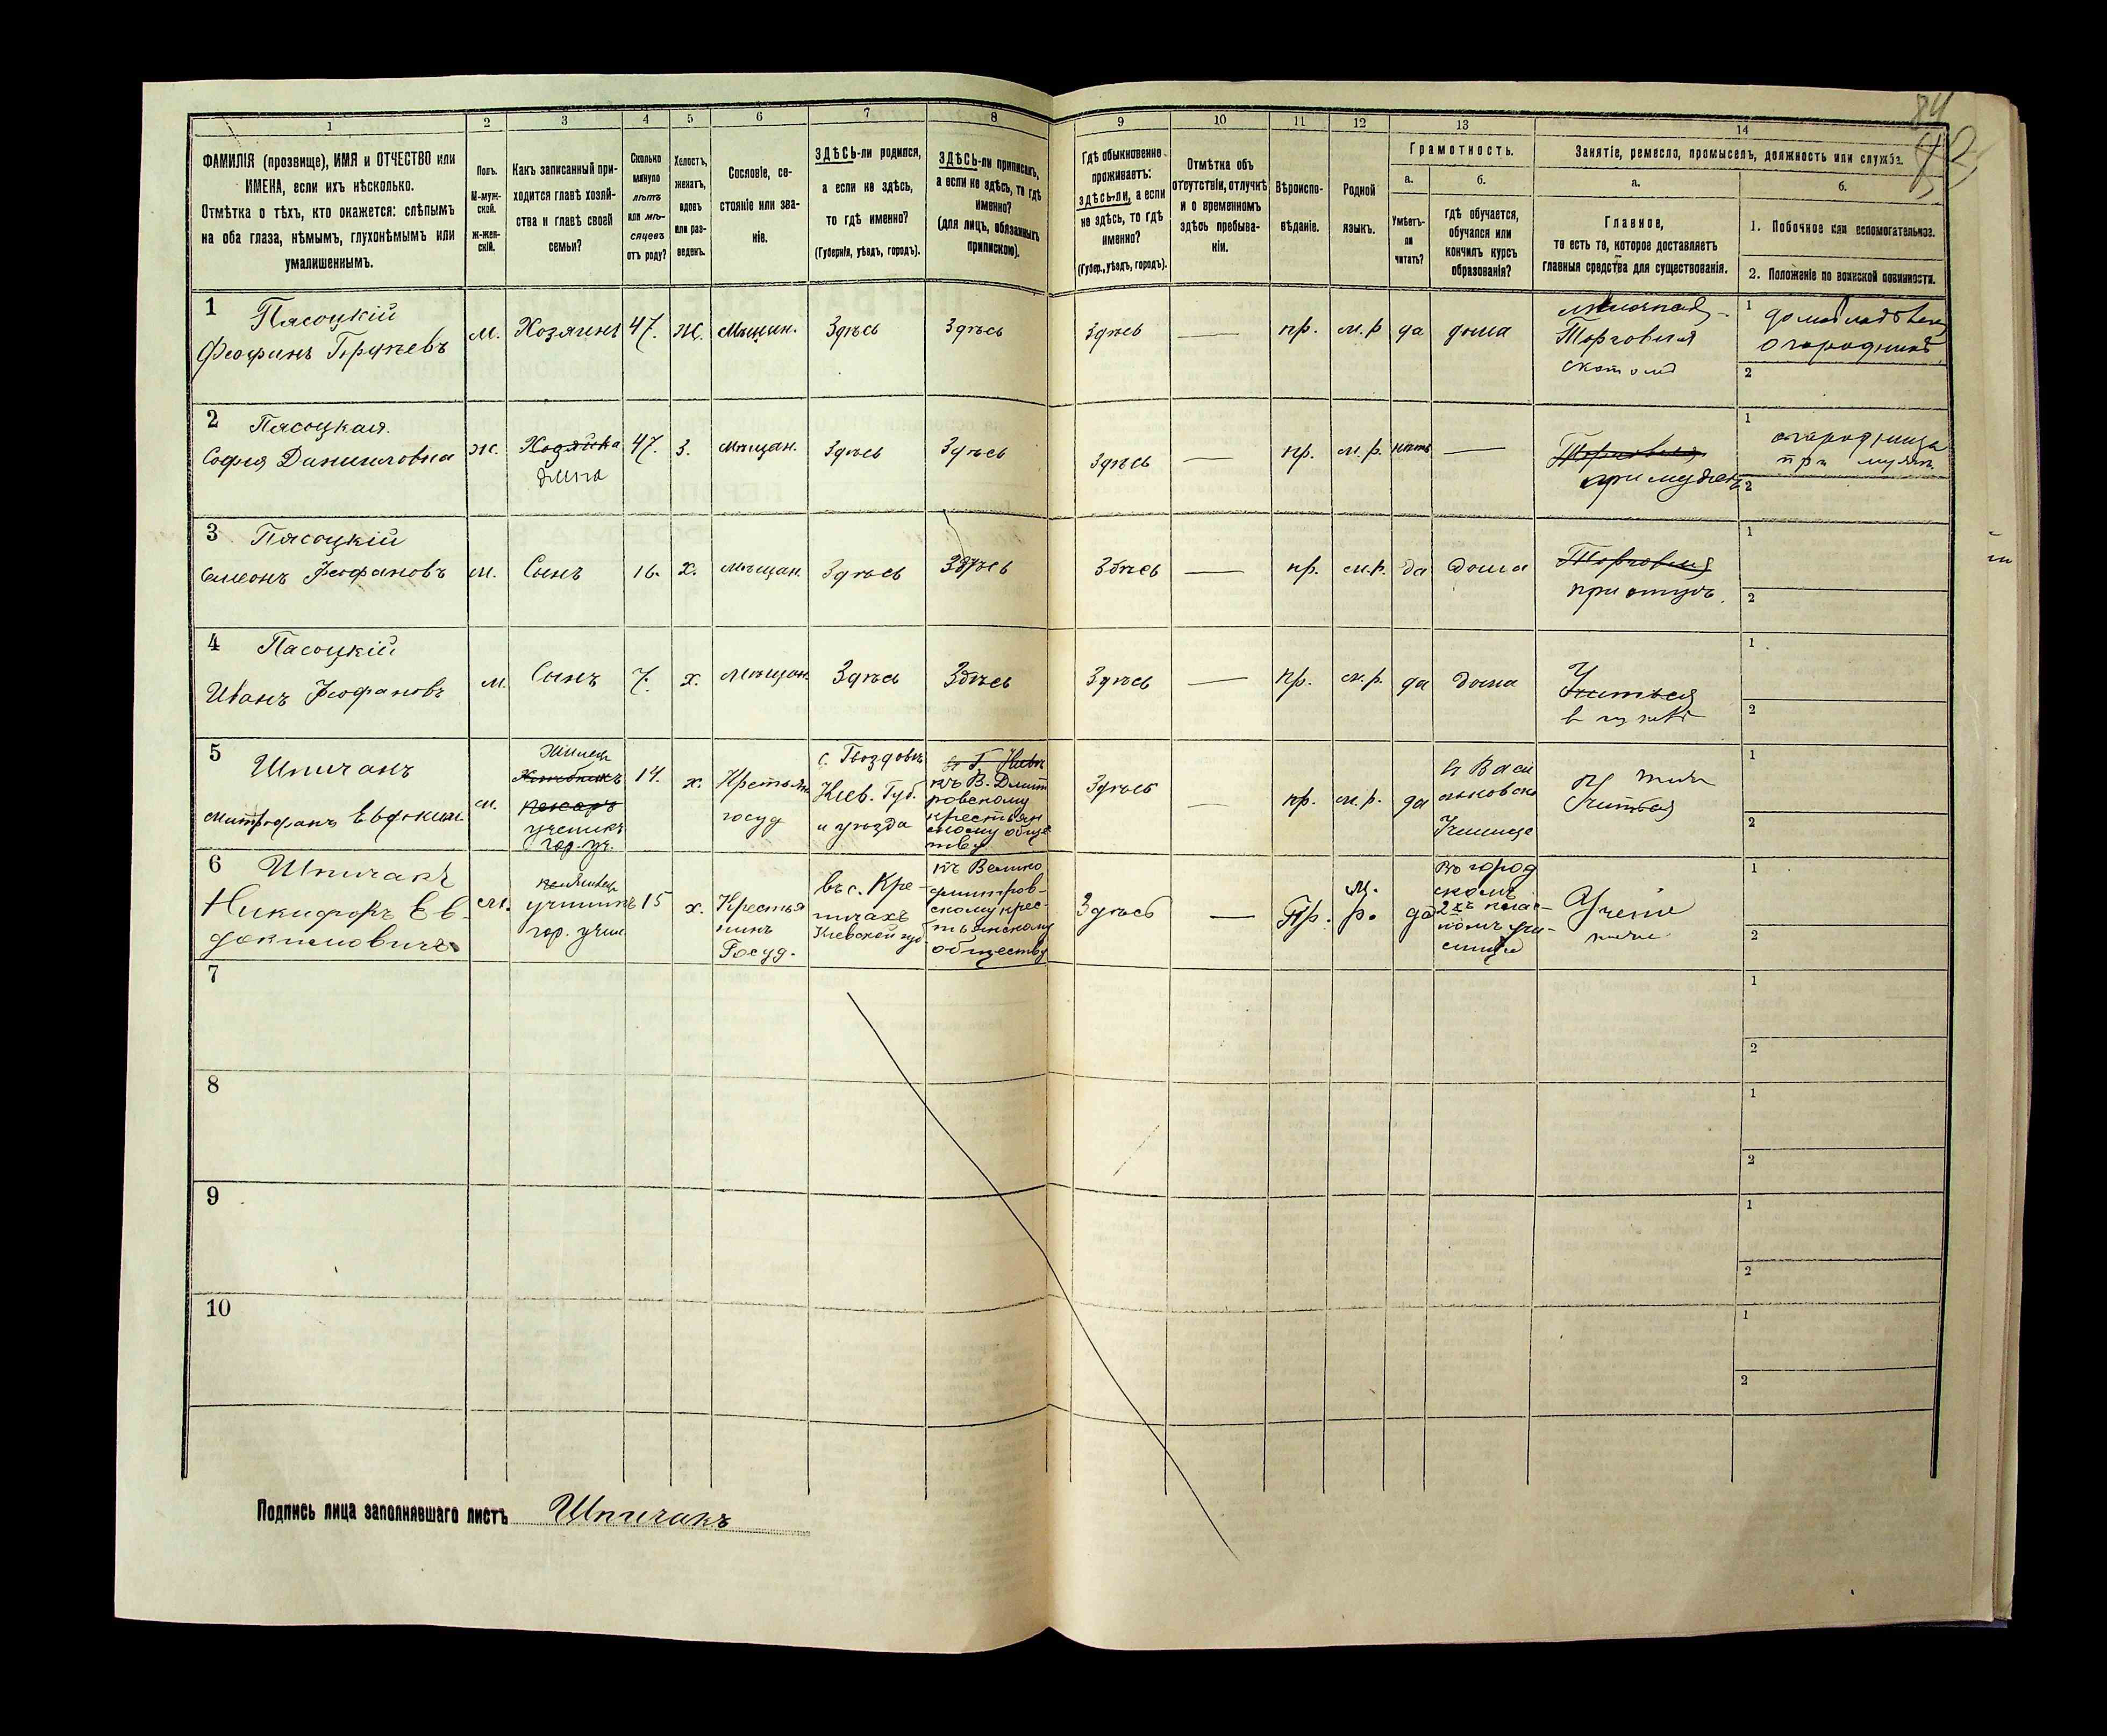 84
1 2 3 4 5 6 7 8 9 10 11 12 13 14
ФАМИЛІЯ (прозвище), ИМЯ и ОТЧЕСТВО или
ИМЕНА, если ихъ нѣсколько.
Отмѣтка о тѣхъ, кто окажется: слѣпымъ
на оба глаза, нѣмымъ, глухонѣмымъ или
умалишеннымъ.
Полъ.
М-муж-
ской.
Ж-жен-
скій.
Какъ записанный при-
ходится главѣ хозяй-
ства и главѣ своей
семьи?
Сколько
минуло
лѣтъ
или мѣ-
сяцевъ
отъ роду?
Холостъ,
женатъ,
вдовъ
или раз-
веденъ.
Сословіе, со-
стояніе или зва-
ніе.
ЗДѢСЬ-ли родился,
а если не здѣсь,
то гдѣ именно?
(Губернія, уѣздъ, городъ).
ЗДѢСЬ-ли приписанъ,
а если не здѣсь, то гдѣ
именно?
(для лицъ, обязанныхъ
припискою).
Гдѣ обыкновенно
проживаетъ:
здѣсь-ли, а если
не здѣсь, то гдѣ
именно?
(Губер., уѣздъ, городъ).
Отмѣтка объ
отсутствіи, отлучкѣ
и о временномъ
здѣсь пребыва-
ніи.
Вѣроиспо-
вѣданіе.
Родной
языкъ.
Грамотность.
а.
Умѣетъ-
ли
читать?
б.
Гдѣ обучается,
обучался или
кончилъ курсъ
образованія?
Занятіе, ремесло, промыселъ, должность или служба.
а.
Главное,
то есть то, которое доставляетъ
главныя средства для существованія.
б.
1. Побочное или вспомогательное.
2. Положеніе по воинской повинности.
1
Пясоцкій
м. Хозяинъ 47. Ж. Мѣщан. Здѣсь Здѣсь Здѣсь — пр. м.р да дома
Торговля
скотомъ
1
огородникъ
2
2
Пясоцкая
Софія Даниловна ж. Хозяйка 47. З. мѣщан. Здѣсь Здѣсь Здѣсь — пр. м.р. нѣтъ —
жена
Торговля
при мужѣ
1 огородница
при мужѣ
2
3
Пясоцкій
Симеонъ Феофановъ м. Сынъ 16. х. мѣщан. Здѣсь Здѣсь Здѣсь — пр. м.р. да дома
Торговля
при отцѣ.
1
2
4
Пасоцкій
Иванъ Феофановъ м. Сынъ 7. х. Мѣщан. Здѣсь Здѣсь Здѣсь — пр. м.р. да дома
Учиться
1
2
5
Шпичакъ
Митрофанъ Евдоким. м.
ученикъ
гор. уч.
14. х. Крестьян
госуд
с. Гвоздовъ
Кіев. Губ.
и уѣзда
къ В. Дмит
ровскому
крестьян
скому обще
ству
Здѣсь — пр. м.р. да
въ Васи
льковско
Училище
Учиться
1
2
6
Шпичакъ
Никифоръ Ев-
докимовичъ
м.
ученикъ
гор. учил.
15 х. Крестья
нинъ
Госуд.
въ с. Кре-
ничахъ
Кіевской губ
къ Велико
дмитров-
скому крес-
тьянскому
обществу
Здѣсь — Пр. м.
р. да
Въ город
скомъ
2хъ клас-
номъ учи-
лищѣ
Ученіе
1
2
7 1
2
8 1
2
9 1
2
10 1
2
Подпись лица заполнявшаго листъ Шпичакъ